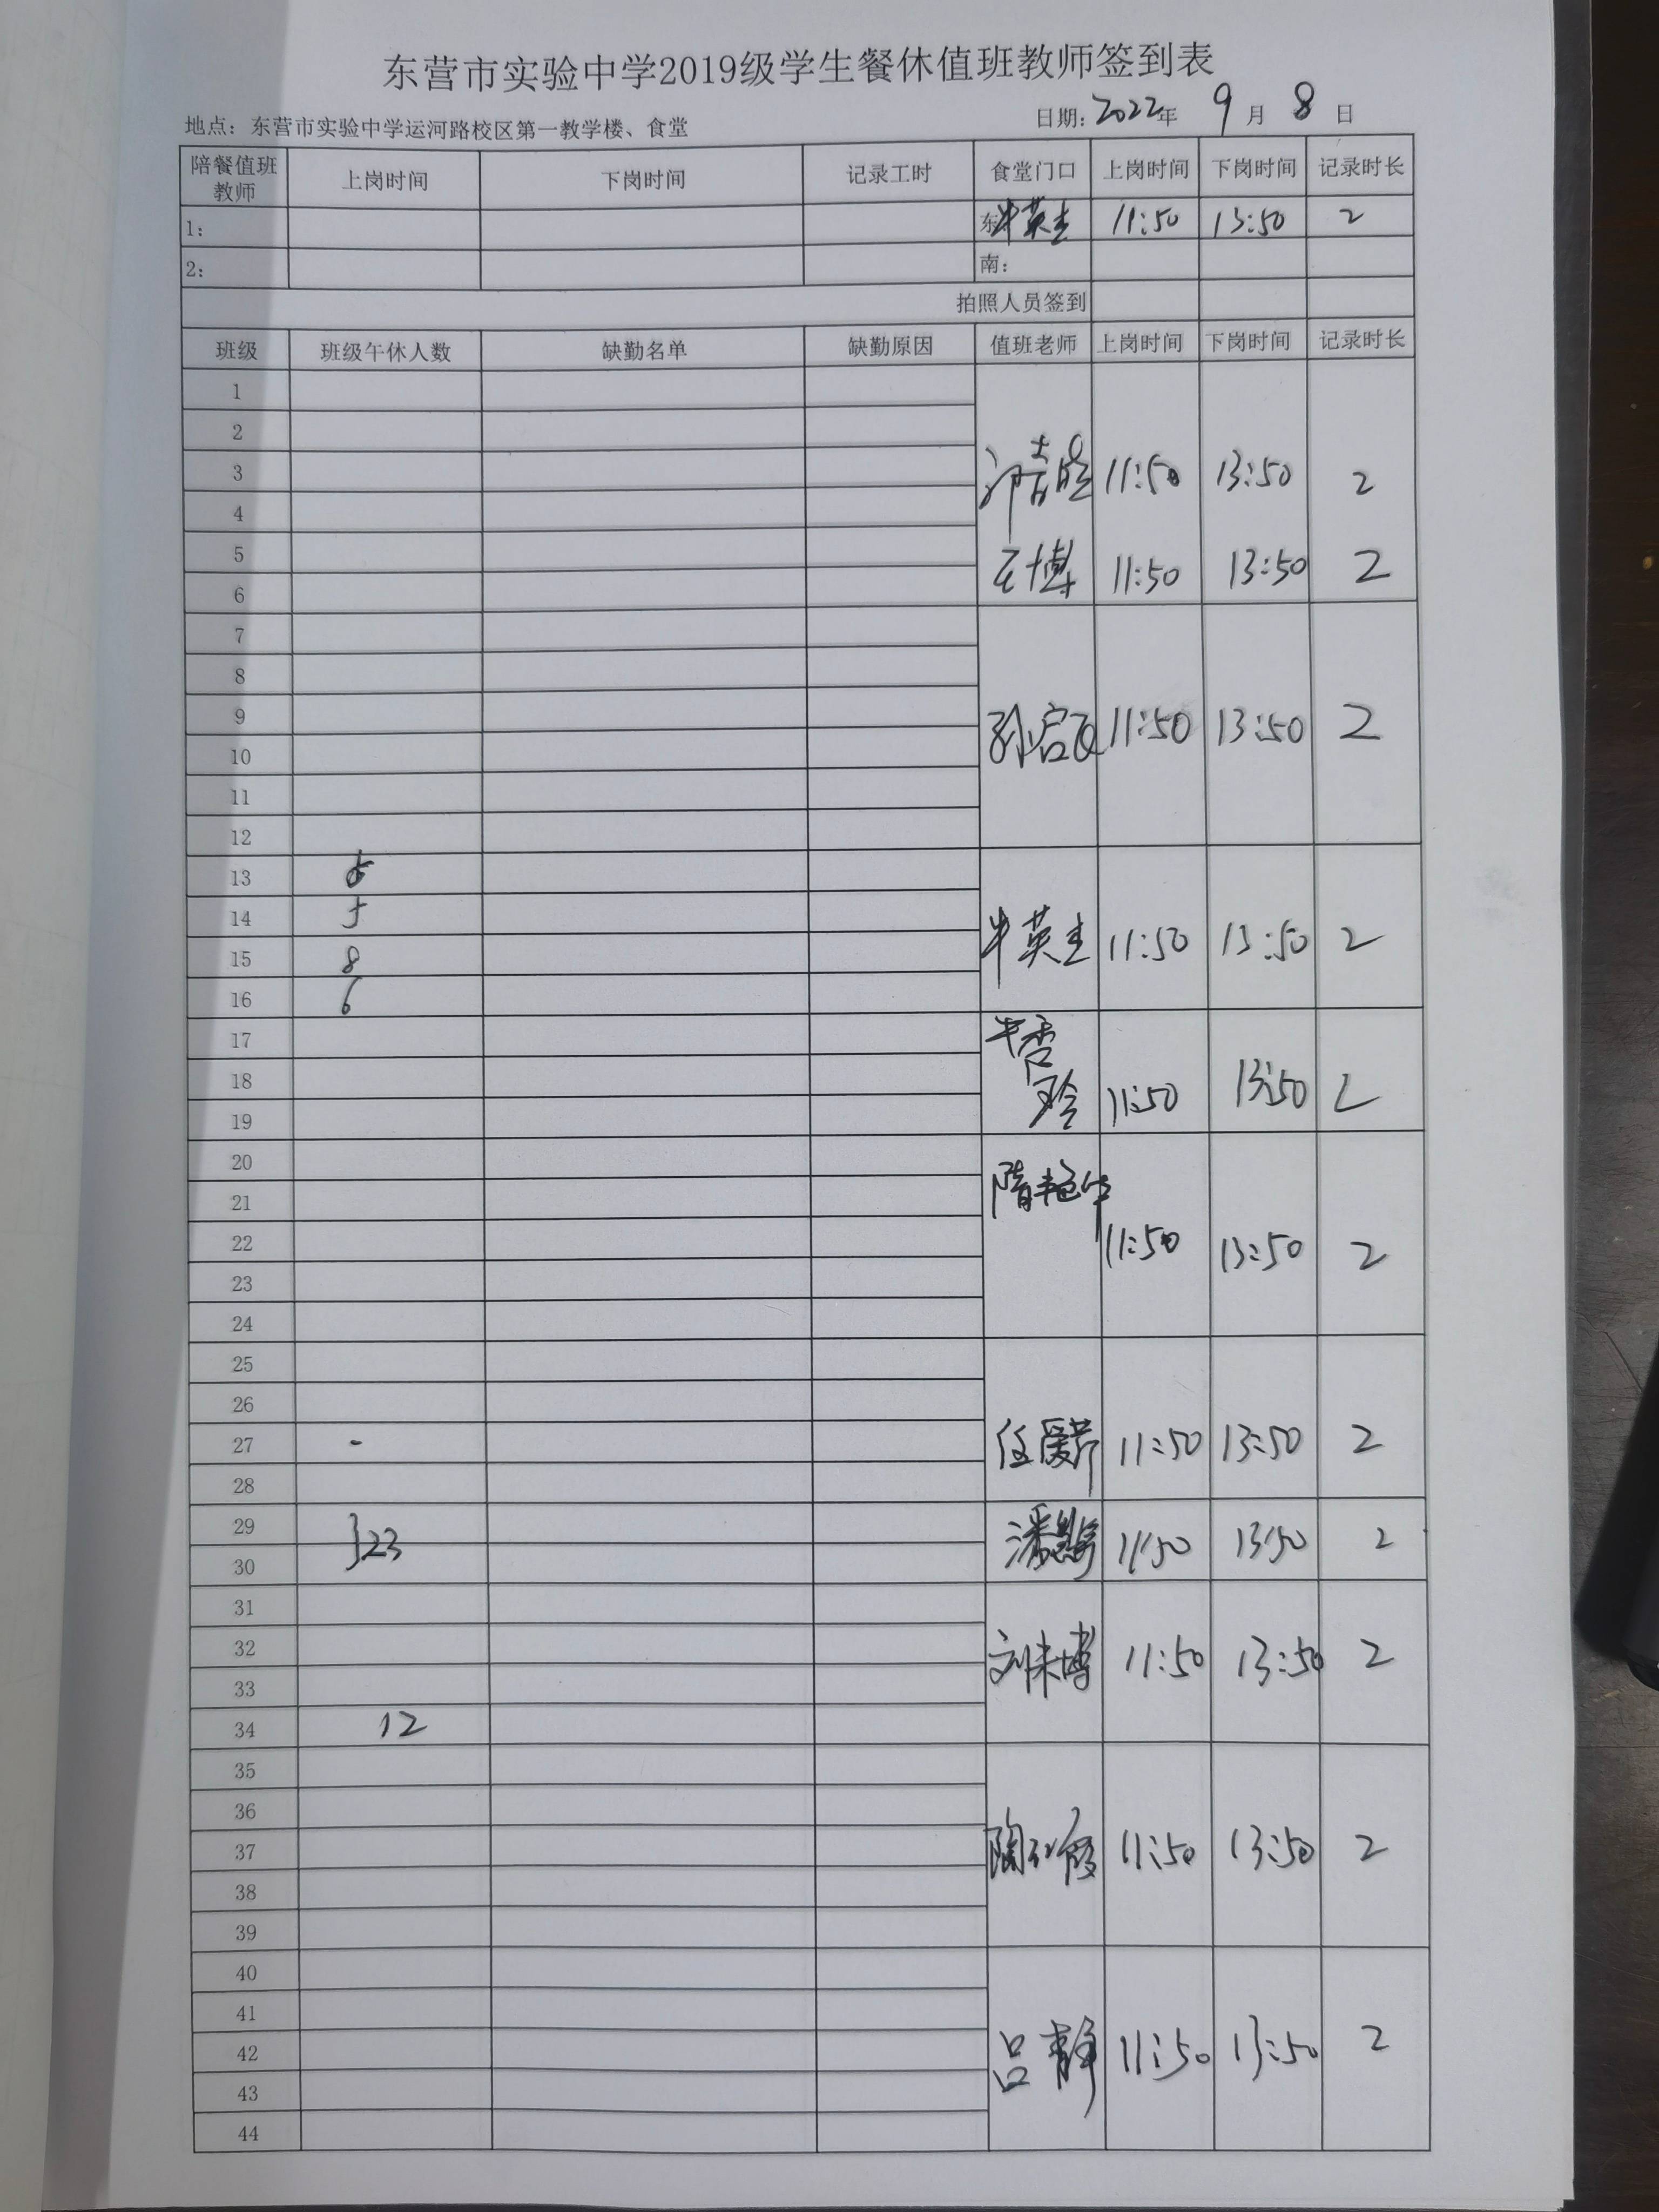 东营市实验中学2019级学生餐休值班教师签到表
地点：东营市实验中学运河路校区第一教学楼、食堂 日期：2022年 9 月 8 日
陪餐值班教师 上岗时间 下岗时间 记录工时 食堂门口 上岗时间 下岗时间 记录时长
1： 东 牛英 11:50 13:50 2
2： 南：
拍照人员签到
班级 班级午休人数 缺勤名单 缺勤原因 值班老师 上岗时间 下岗时间 记录时长
1
2
3 11:50 13:50 2
4
5 王博 11:50 13:50 2
6
7
8
9 孙启 11:50 13:50 2
10
11
12
13
14 5
15 8 牛英 11:50 13:50 2
16 6
17 牛香
18 玲 11:50 13:50 2
19
20
21 隋艳华
22 11:50 13:50 2
23
24
25
26
27 - 任爱芹 11:50 13:50 2
28
29 }23 潘 11:50 13:50 2
30
31
32 刘未博 11:50 13:50 2
33
34 12
35
36
37 陶红霞 11:50 13:50 2
38
39
40
41
42 吕静 11:50 13:50 2
43
44